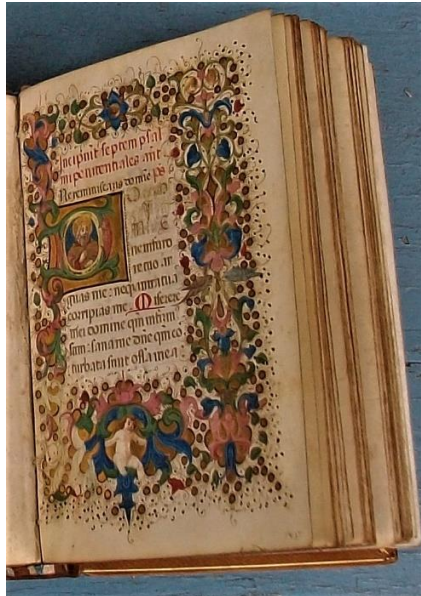 Incipiut septem psal
mi penitentiales ant
Ne reminiscaris domie ps
ne in furo
re tuo ar
guas me: neq in ira tua
corripias me. Miserere
mei domine qm infirm
sum: sana me dne qm co
turbata sunt ossa mea